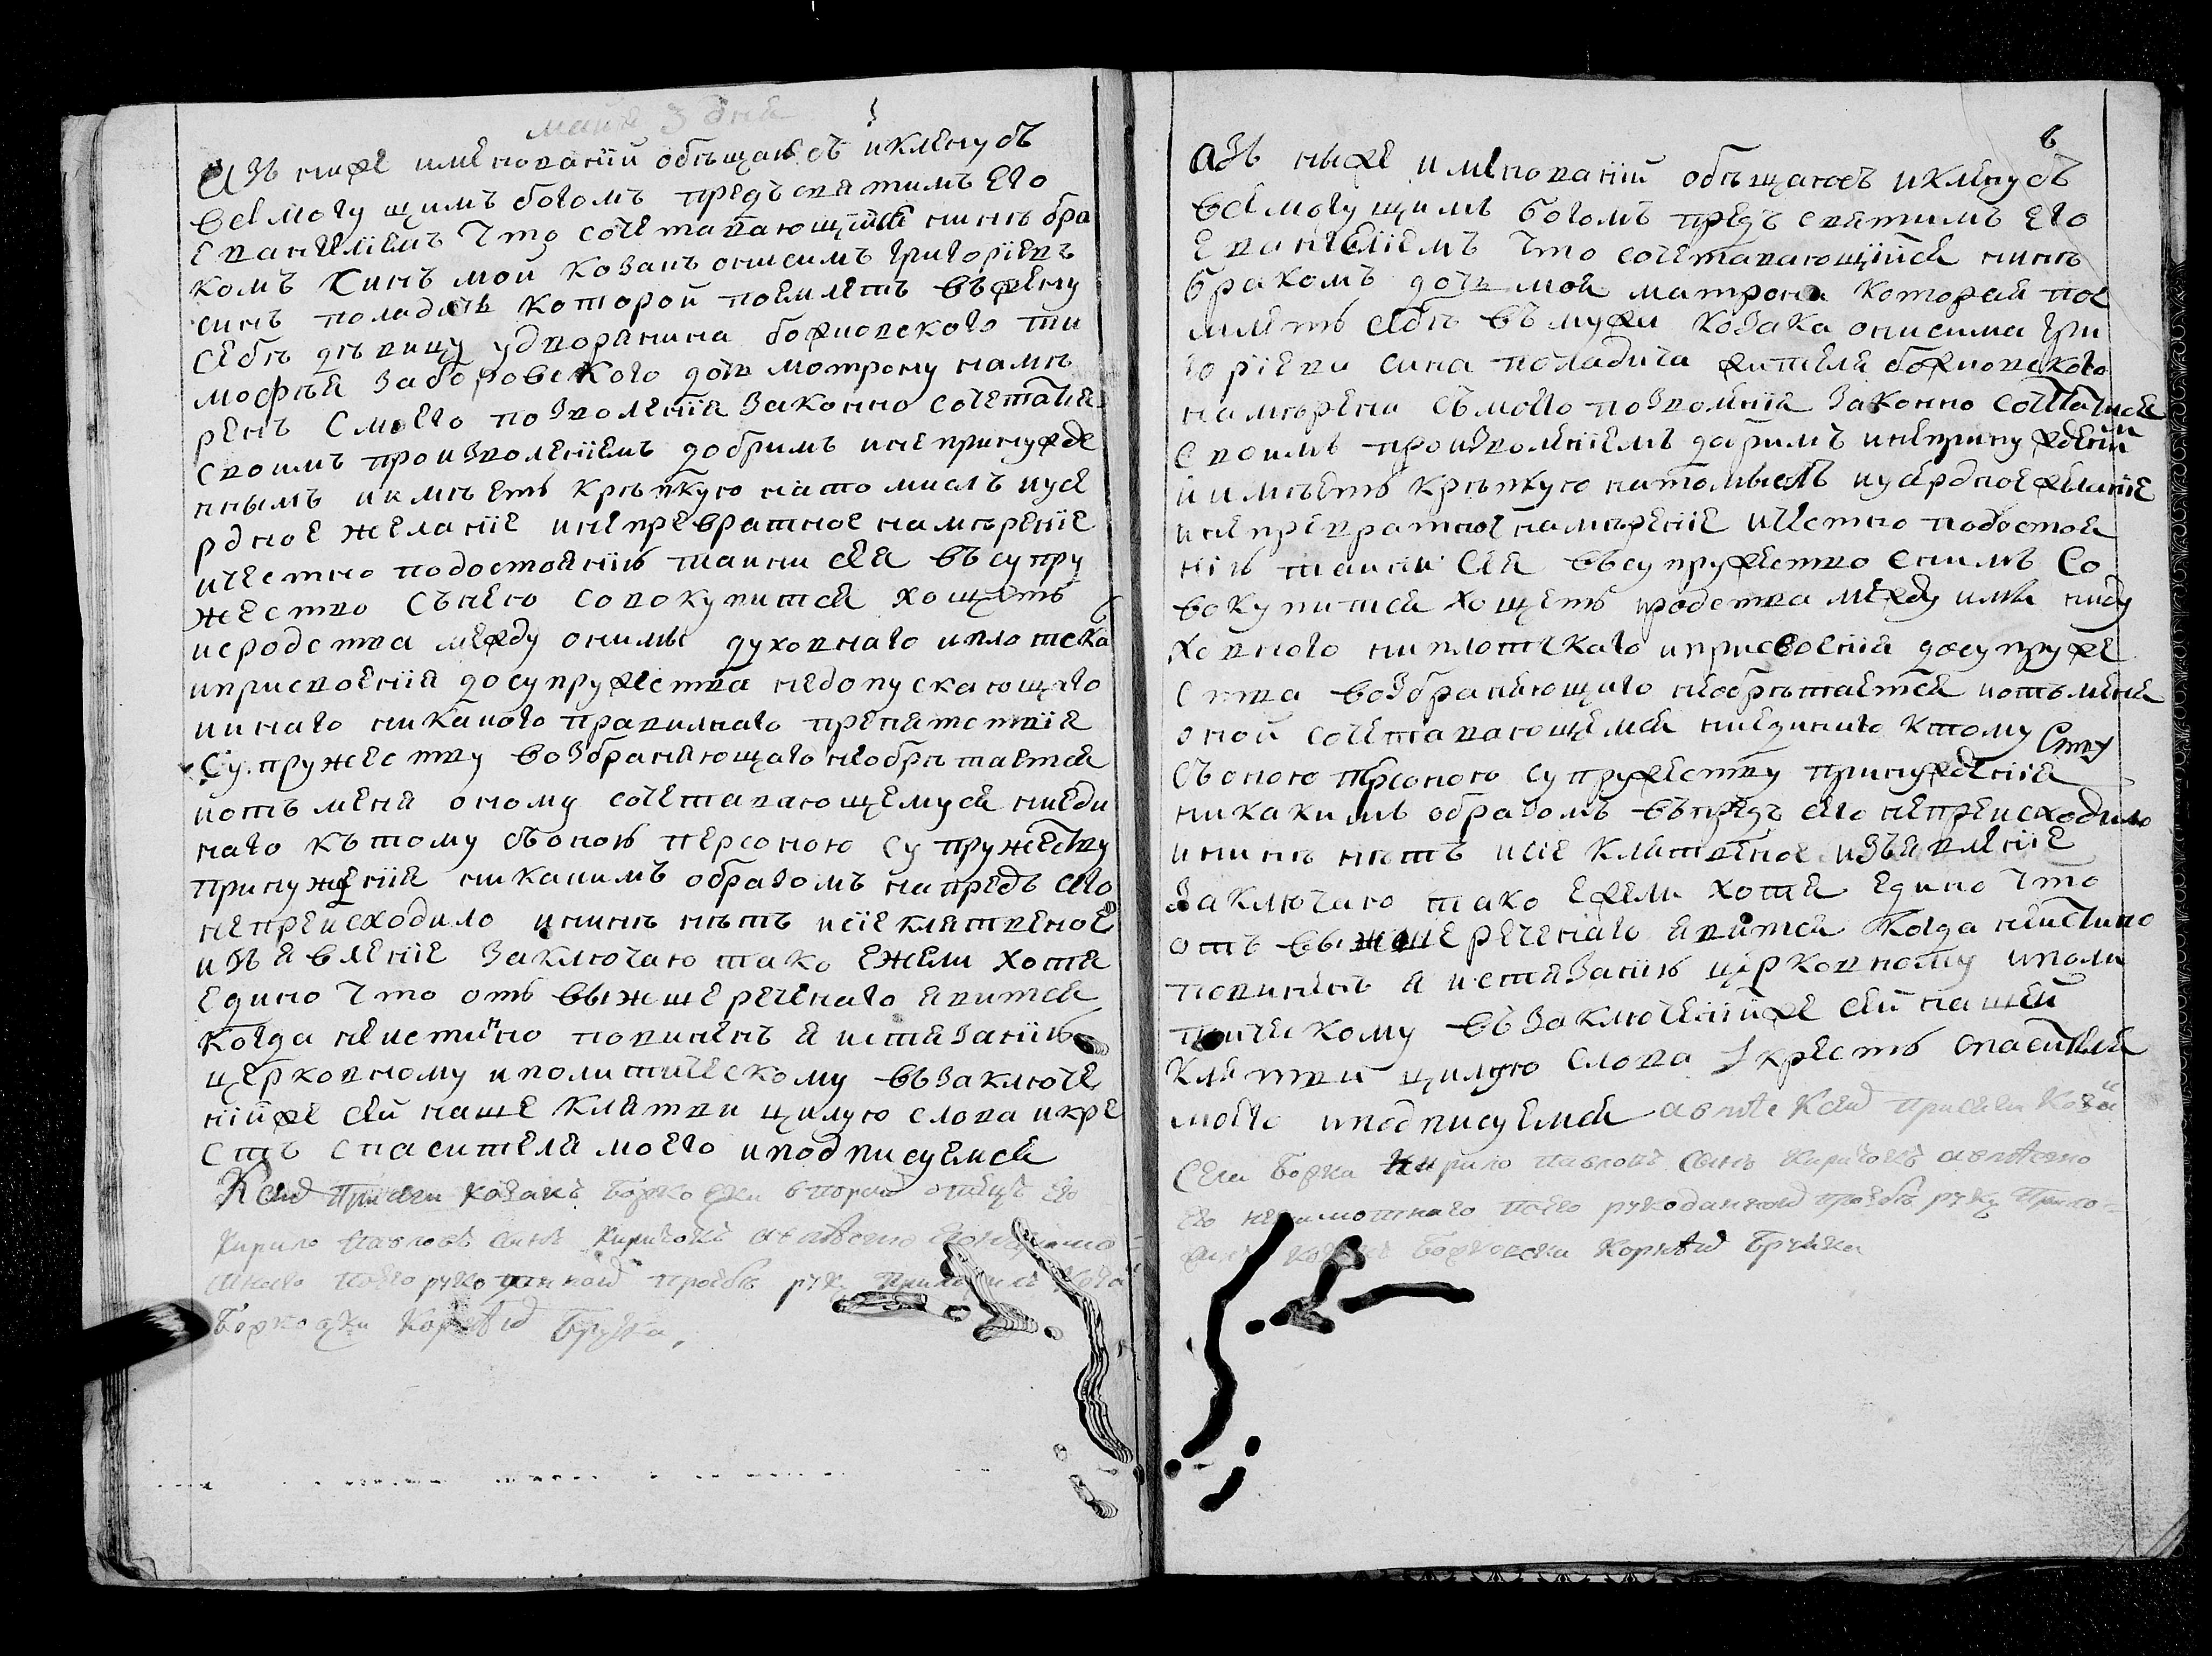 майя 3 дня
Азъ ниже именованній обѣщаюсъ и кленусъ
всемогущимъ богомъ предъ святимъ его
евангелиемъ что сочетавающійся нинѣ бра
комъ синъ мой козакъ онисимъ григориевъ
синъ которой поемлетъ въ жену
себѣ дѣвицу у дворянина божковского ти
мофѣя заборовского дочъ мотрону намѣ
ренъ с моего позволения законно сочетатися
своимъ произволениемъ добримъ и непринужде
ннымъ и имѣетъ крѣпкую на то мисль и усе
рдное желаніе и непревратное намѣреніе
и честно по достоянію таини сея въ супру
жество съ нею совокупится хощетъ
и родства между оними духовнаго и плотска
и присвоения до супружества недопускающаго
и инаго никакого правилнаго препятствия
супружеству возбраняющаго необрѣтается
и отъ меня оному сочетавающемуся ниеди
наго къ тому съ оною персоною супружеству
принуженія никакимъ образомъ напредъ сего
непреисходило и нинѣ нѣтъ и сіе клятвеное
изъявленіе заключаю тако ежели хотя
едино что отъ выжшереченаго явится
когда неистинно повиненъ я истязанію
церковному и политическому въ заключе
нійже сей наше клятви цилую слова и кре
стъ спасителя моего и подписуемся
К сей присяги козакъ отецъ его
Кирило Павловъ синъ Киричокъ а вмѣсто его неграмо
тнаго по его рукоданной прозбѣ руку приложилъ коза
Корнѣй Бруяка
6
Азъ ниже именованній обѣщаюсъ и кленусъ
всемогущимъ богомъ предъ святимъ его
евангелиемъ что сочетавающійся нинѣ
бракомъ дочъ моя матрона которая пое
млетъ себѣ въ мужи козака онисима гри
гориева сина жителя божковского
намѣрена съ моего позволения законно сочетатися
своимъ произволениемъ добримъ и непринужденим
и имѣетъ крѣпкую на то мысль и усердное желание
и непревратное намѣрение и честно по достоя
нію таини сея въ супружество с нимъ со
вокупится хощетъ и родства между ими ниду
ховного ни плотскаго и присвоения до супруже
ства возбраняющаго необрѣтается и отъ меня
оной сочетавающемся ниединого к тому
съ оною персоною супружеству принуждения
никакимъ образомъ въпредъ сего непреисходило
и нинѣ нѣтъ и сіе клятвеное изъявленіе
заключаю тако ежели хотя едино что
отъ выжшереченаго явится когда неистино
повиненъ я истязанію церковному и поли
тическому въ заключенійже сей нашей
клятвы цилую слова и крестъ спасителя
моего и подписуемся а вмѣсто к сей присяги коза
села Божка Кирило Павловъ синъ Киричокъ а вмѣсто
его неграмотнаго по его рукоданной прозбѣ руку прило
жилъ козакъ Корнѣй Бруяка